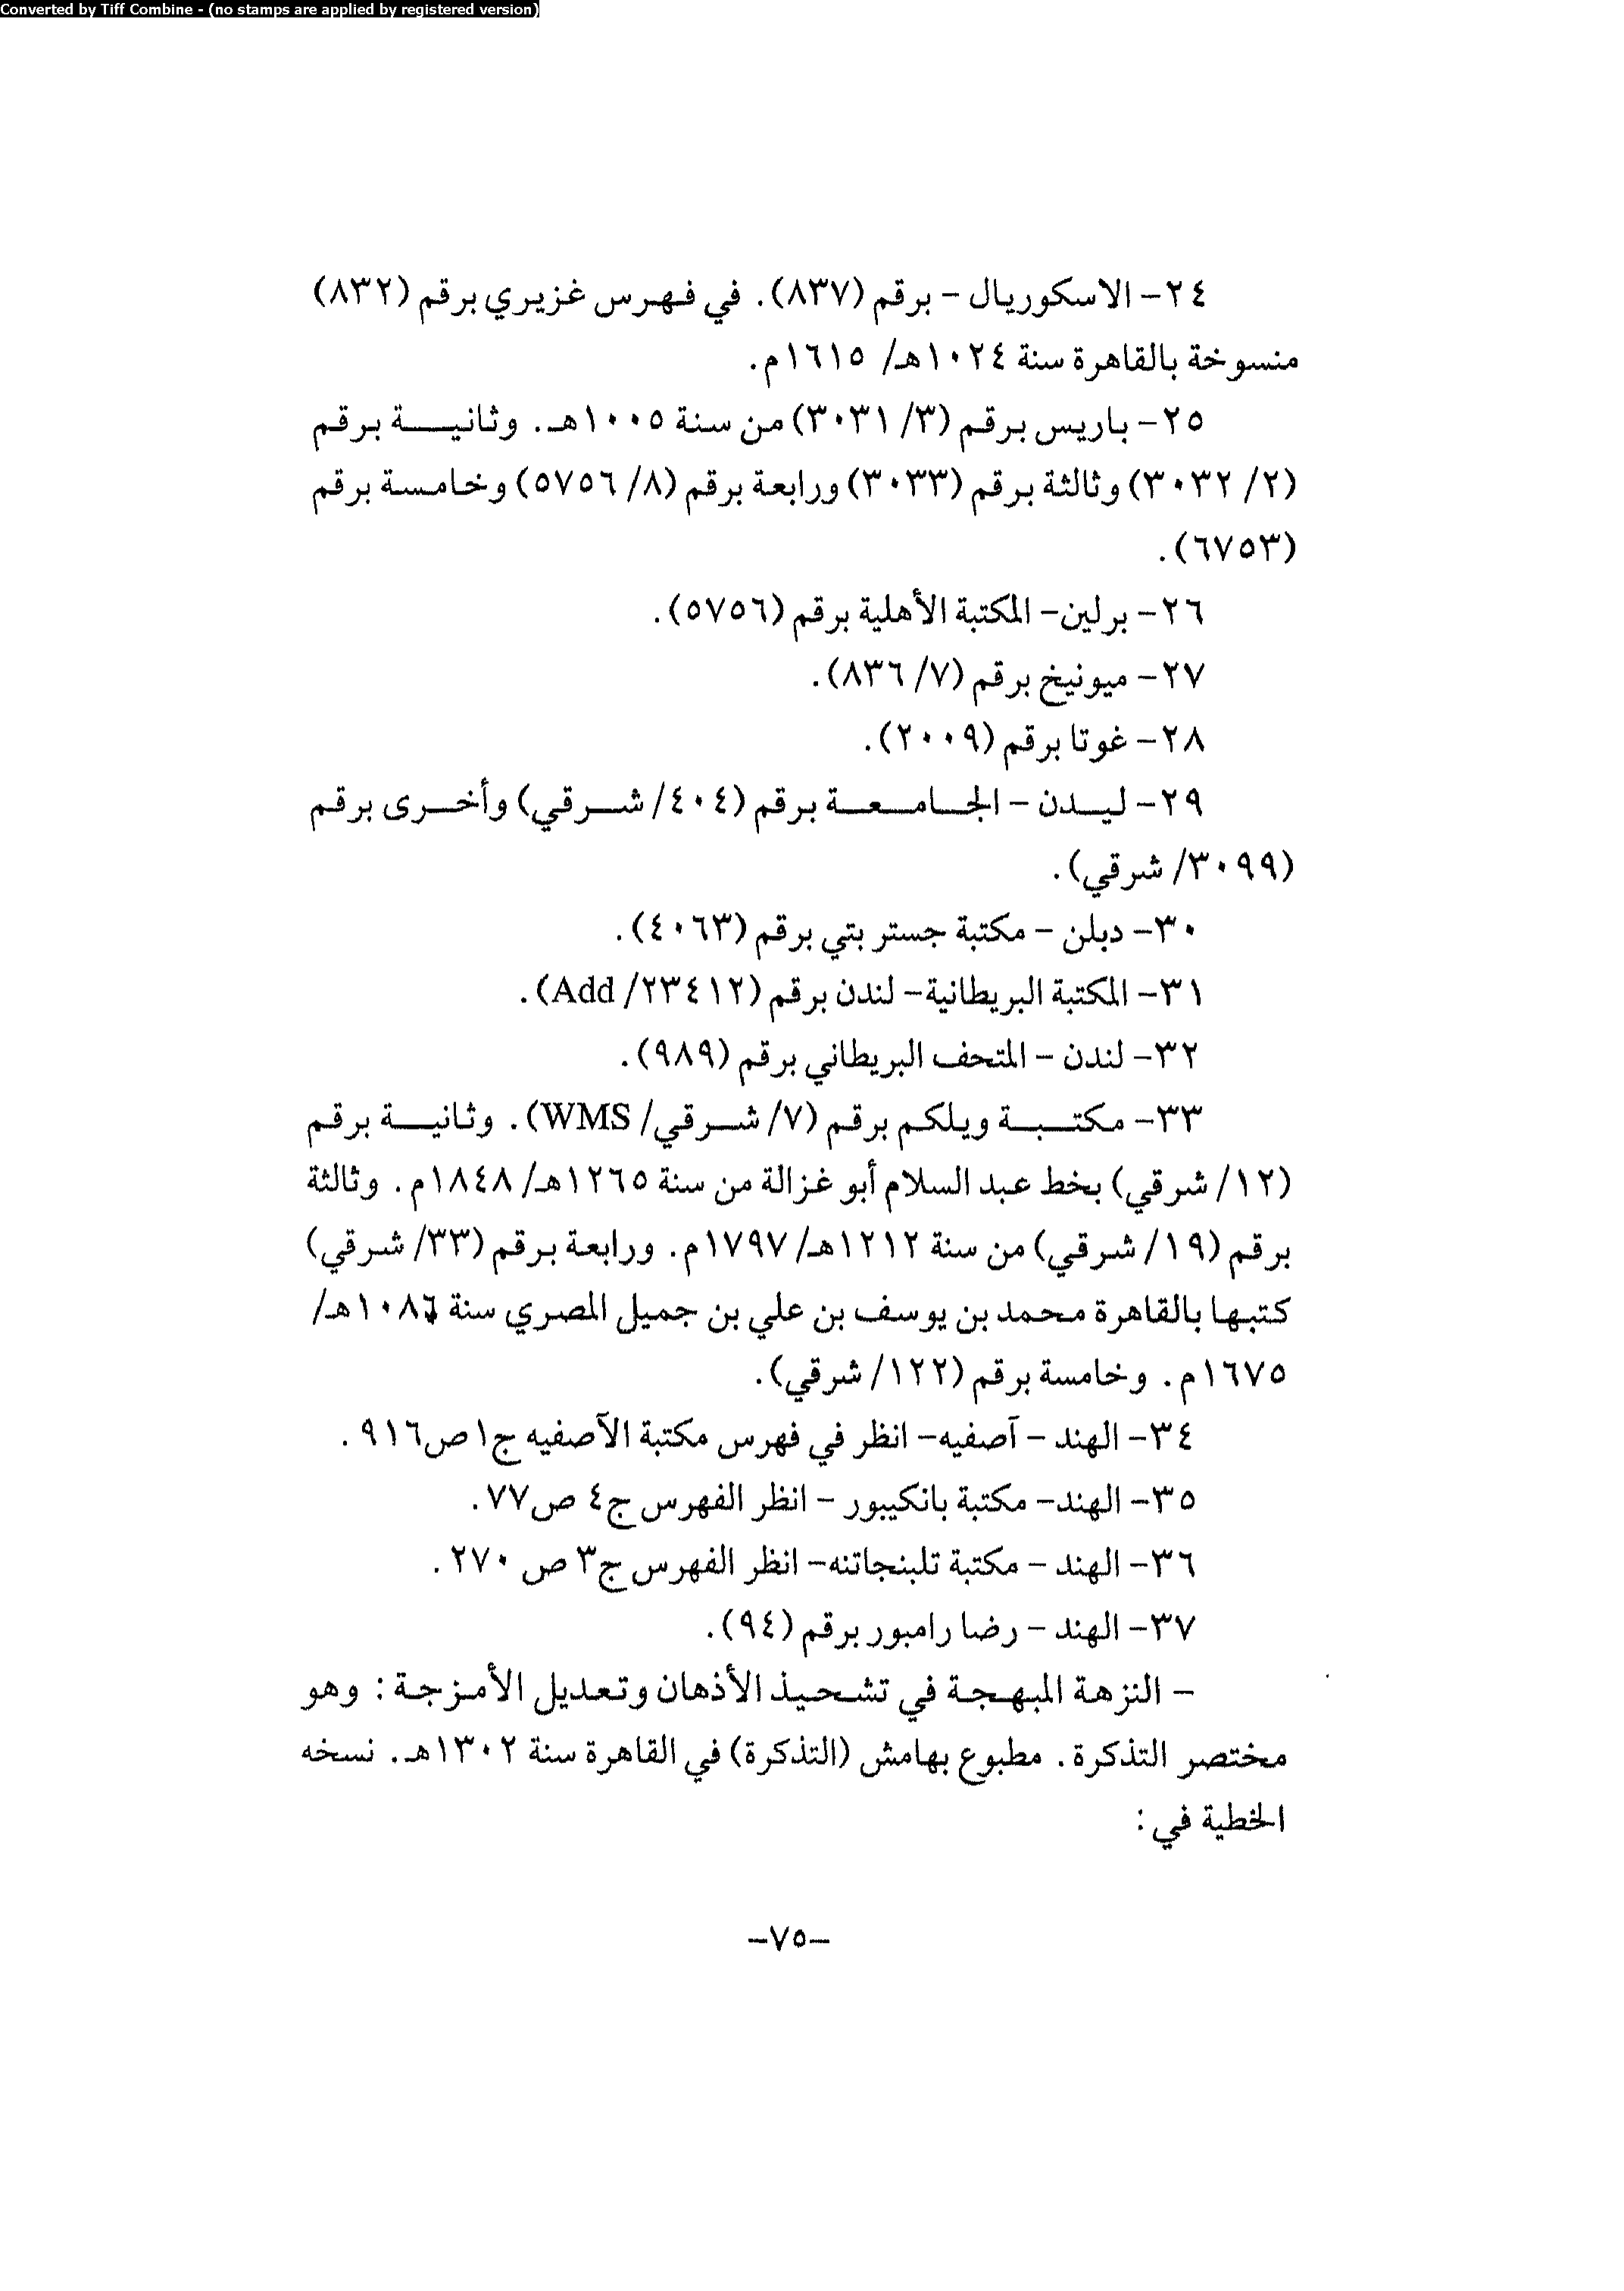 Converted by Tiff Combine - (no stamps are applied by registered version)
٢٤- الاسكوريال - برقم (٨٣٧). في فهرس غزيري برقم (٨٣٢)
منسوخة بالقاهرة سنة ١٠٢٤هـ/ ١٦١٥م.
٢٥- باريس برقم (٣/ ٣٠٣١) من سنة ١٠٠٥هـ. وثانية برقم
(٢/ ٣٠٣٢) وثالثة برقم (٣٠٣٣) ورابعة برقم (٨/ ٥٧٥٦) وخامسة برقم
(٦٧٥٣).
٢٦- برلين- المكتبة الأهلية برقم (٥٧٥٦).
٢٧- ميونيخ برقم (٧/ ٨٣٦).
٢٨- غوتا برقم (٢٠٠٩).
٢٩- ليدن - الجامعة برقم (٤٠٤/ شرقي) وأخرى برقم
(٣٠٩٩/ شرقي).
٣٠- دبلن - مكتبة جستر بتي برقم (٤٠٦٣).
٣١- المكتبة البريطانية- لندن برقم (٢٣٤١٢/ Add).
٣٢- لندن - المتحف البريطاني برقم (٩٨٩).
٣٣- مكتبة ويلكم برقم (٧/ شرقي/ WMS). وثانية برقم
(١٢/ شرقي) بخط عبد السلام أبو غزالة من سنة ١٢٦٥هـ/ ١٨٤٨م. وثالثة
برقم (١٩/ شرقي) من سنة ١٢١٢هـ/ ١٧٩٧م. ورابعة برقم (٣٣/ شرقي)
كتبها بالقاهرة محمد بن يوسف بن علي بن جميل المصري سنة ١٠٨٦هـ/
١٦٧٥م. وخامسة برقم (١٢٢/ شرقي).
٣٤- الهند - آصفيه- انظر في فهرس مكتبة الآصفيه ج١ ص٩١٦.
٣٥- الهند- مكتبة بانكيبور - انظر الفهرس ج٤ ص٧٧.
٣٦- الهند - مكتبة تلبنجاتنه- انظر الفهرس ج٣ ص ٢٧٠.
٣٧- الهند - رضا رامبور برقم (٩٤).
- النزهة المبهجة في تشحيذ الأذهان وتعديل الأمزجة: وهو
مختصر التذكرة. مطبوع بهامش (التذكرة) في القاهرة سنة ١٣٠٢هـ. نسخه
الخطية في:
-٧٥-